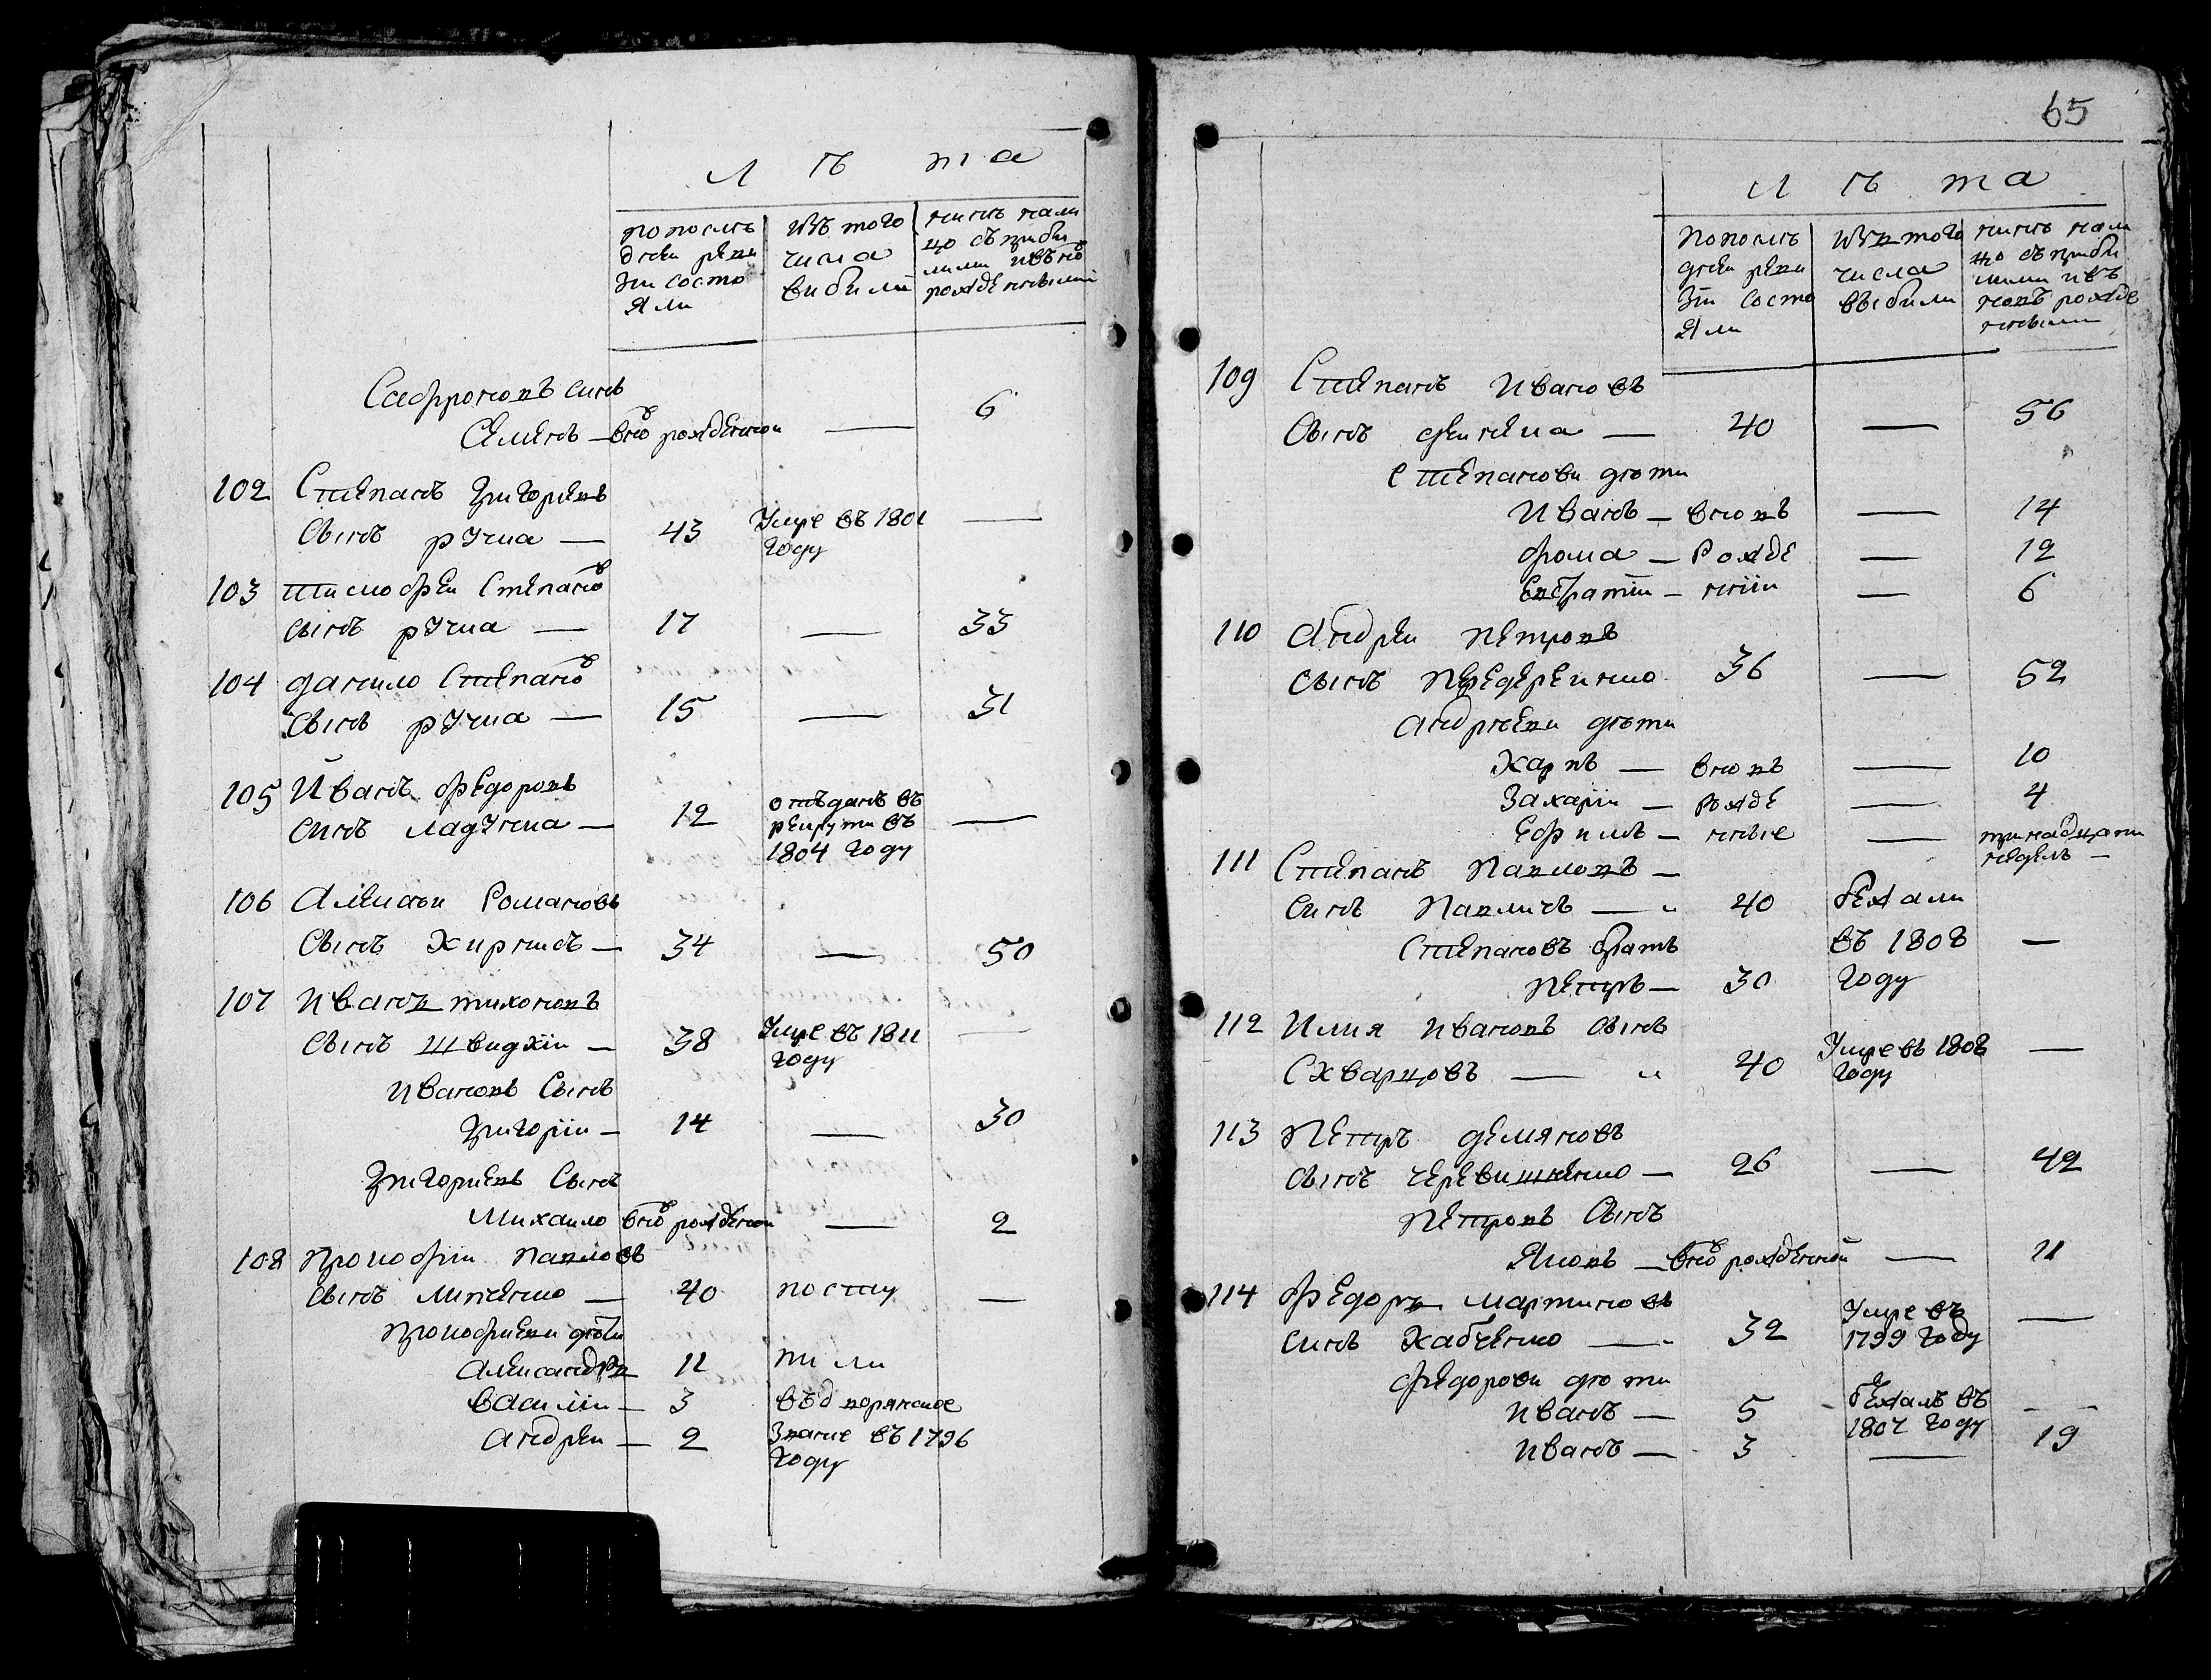 Л ѣ та
по послѣ
дней реви
зіи состо
яли
изъ того
числа
вибили
нинѣ нали
цо съ приби
лими ивъно
рожденными
Сафроновъ синъ
Семенъ — вно рожденной — 6
102 Степанъ Григориевъ
сынъ рУчка — 43 Умре въ 1801 —
году
103 тимофеи Степано
сынъ рУчка — 17 — 33
104 данило Степано
сынъ рУчка — 15 — 31
105 Иванъ федоровъ
синъ ладУнка — 12 отъданъ въ —
рекрути въ
1804 году
106 Алексѣи Романовъ
сынъ Хиряисъ — 34 — 50
107 иванъ тихоновъ
сынъ швидкіи — 38 Умре въ 1811 —
году
ивановъ сынъ
григоріи — 14 — 30
григориевъ сынъ
михаило вно рожденнои — 2
108 прокофіи павловъ
сынъ линченко — 40 посту —
прокофиеви дѣти
александръ 11 пили
василіи — 3 въдворянское
андреи — 2 звание въ 1796
году
65
Л ѣ та
по послѣ
днеи реви
зіи состо
яли
изъ того
числа
выбили
нинѣ нали
цо съ приби
лими ивъ
новъ рожде
нными
109 Степанъ ивановъ
сынъ — 40 — 56
степанови дѣти
иванъ — вновъ — 14
фома — рожде — 12
евстратіи — нніи — 6
110 андреи петровъ
сынъ передереинко 36 — 52
андрѣеви дѣти
Харпъ — вновъ — 10
Захаріи — рожде — 4
ефимъ — нные — тринадцати
недель —
111 Степанъ павловъ —
синъ павличъ — „ 40 бежали
степановъ братъ въ 1808 —
петръ — 30 году
112 илия ивановъ сынъ
Схварцовъ — „ 40 Умре въ 1808 —
году
113 петръ демяновъ
сынъ черевишненко — 26 — 42
петровъ сынъ
яковъ — вно рожденной — 11
114 федоръ мартиновъ
синъ хабченко — 32 Умре въ —
1799 году
федорови дѣти
иванъ — 5 бежалъ въ —
1801 году
иванъ — 3 — 19